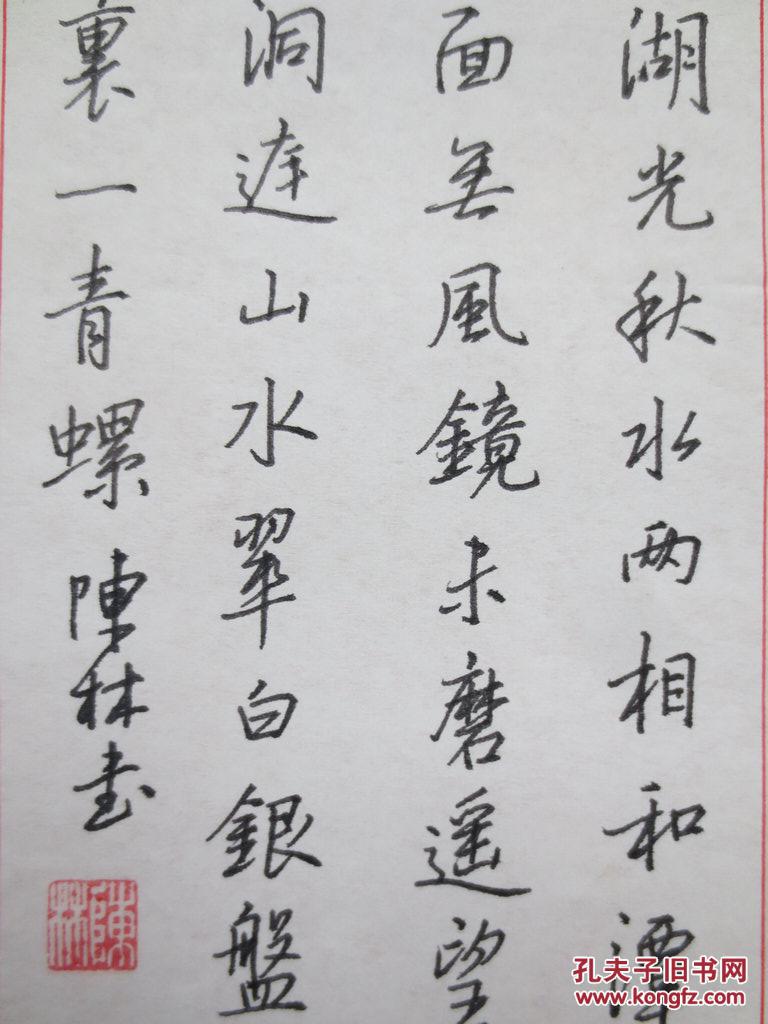 湖光秋水两相和潭
面無風鏡未磨遥望
洞庭山水翠白銀盤
裏一青螺陳林書
陳林
孔夫子旧书网
www.kongfz.com